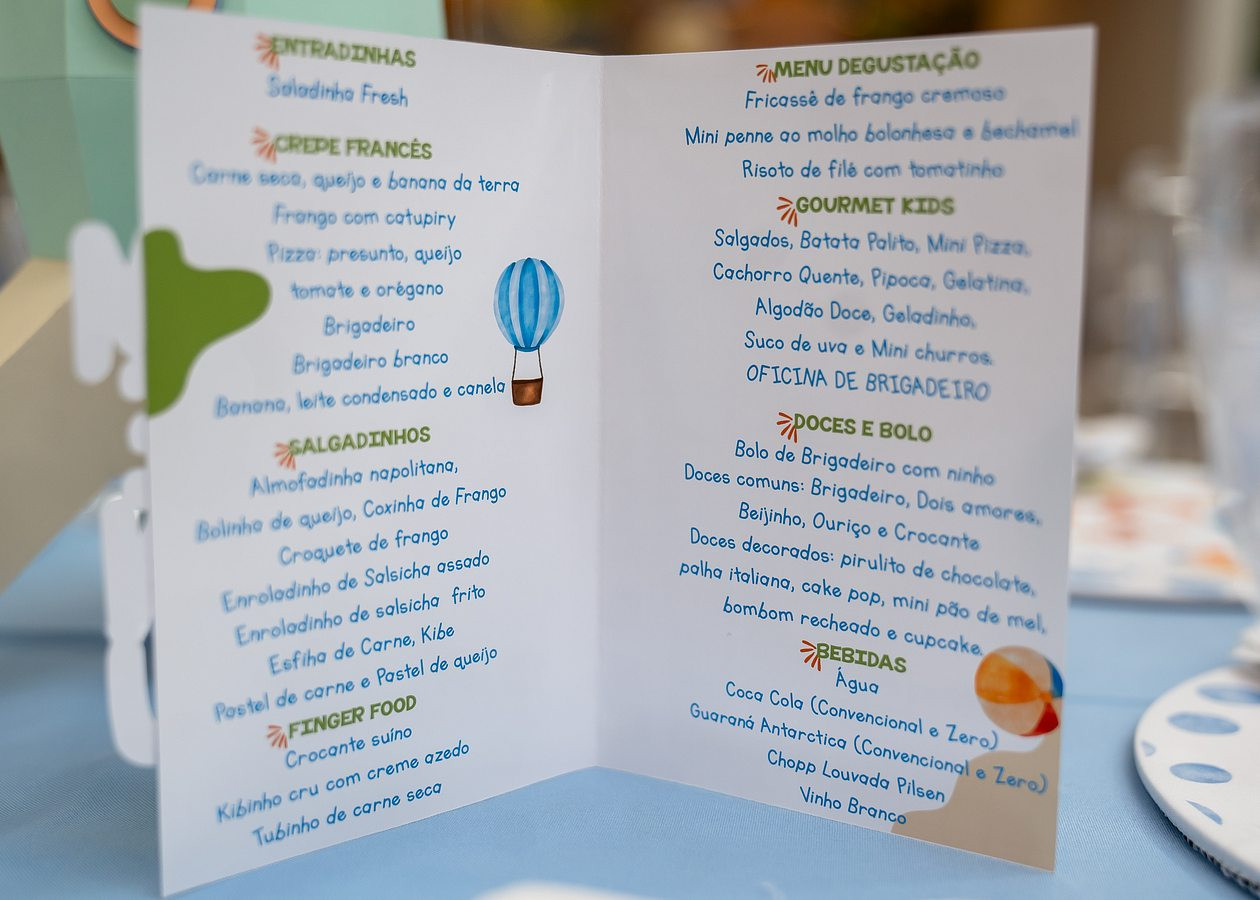 ENTRADINHAS
Saladinha Fresh
CREPE FRANCÊS
Carne seca, queijo e banana da terra
Frango com catupiry
Pizza: presunto, queijo
tomate e orégano
Brigadeiro
Brigadeiro branco
Banana, leite condensado e canela
SALGADINHOS
Almofadinha napolitana,
Bolinho de queijo, Coxinha de Frango
Croquete de frango
Enroladinho de Salsicha assado
Enroladinho de salsicha frito
Esfiha de Carne, Kibe
Pastel de carne e Pastel de queijo
FINGER FOOD
Crocante suíno
Kibinho cru com creme azedo
Tubinho de carne seca
MENU DEGUSTAÇÃO
Fricassê de frango cremoso
Mini penne ao molho bolonhesa e bechamel
Risoto de filé com tomatinho
GOURMET KIDS
Salgados, Batata Palito, Mini Pizza,
Cachorro Quente, Pipoca, Gelatina,
Algodão Doce, Geladinho,
Suco de uva e Mini churros.
OFICINA DE BRIGADEIRO
DOCES E BOLO
Bolo de Brigadeiro com ninho
Doces comuns: Brigadeiro, Dois amores,
Beijinho, Ouriço e Crocante
Doces decorados: pirulito de chocolate,
palha italiana, cake pop, mini pão de mel,
bombom recheado e cupcake.
BEBIDAS
Água
Coca Cola (Convencional e Zero)
Guaraná Antarctica (Convencional e Zero)
Chopp Louvada Pilsen
Vinho Branco